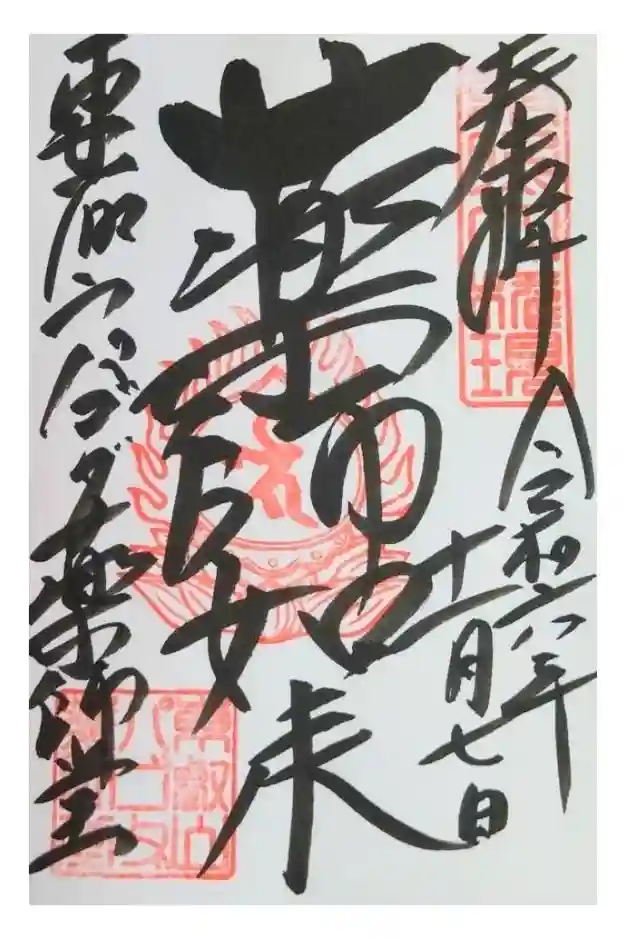 奉拝
令和六年
十一月七日
薬師如来
東叡山パゴダ薬師堂